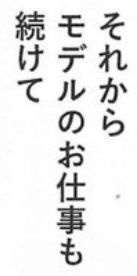 それから
モデルのお仕事も
続けて